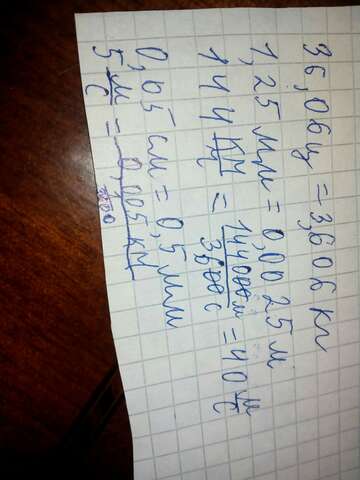 36,06 ц = 3,606 кг
1,25 мм = 0,0025 м
144 км/ч = 144000 м/3600 с = 40 м/с
0,05 см = 0,5 мм
5 м/с = 0,005 км